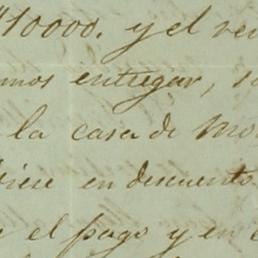 $10000. y el
mos entregar,
la casa de
en descuento
el pago y en